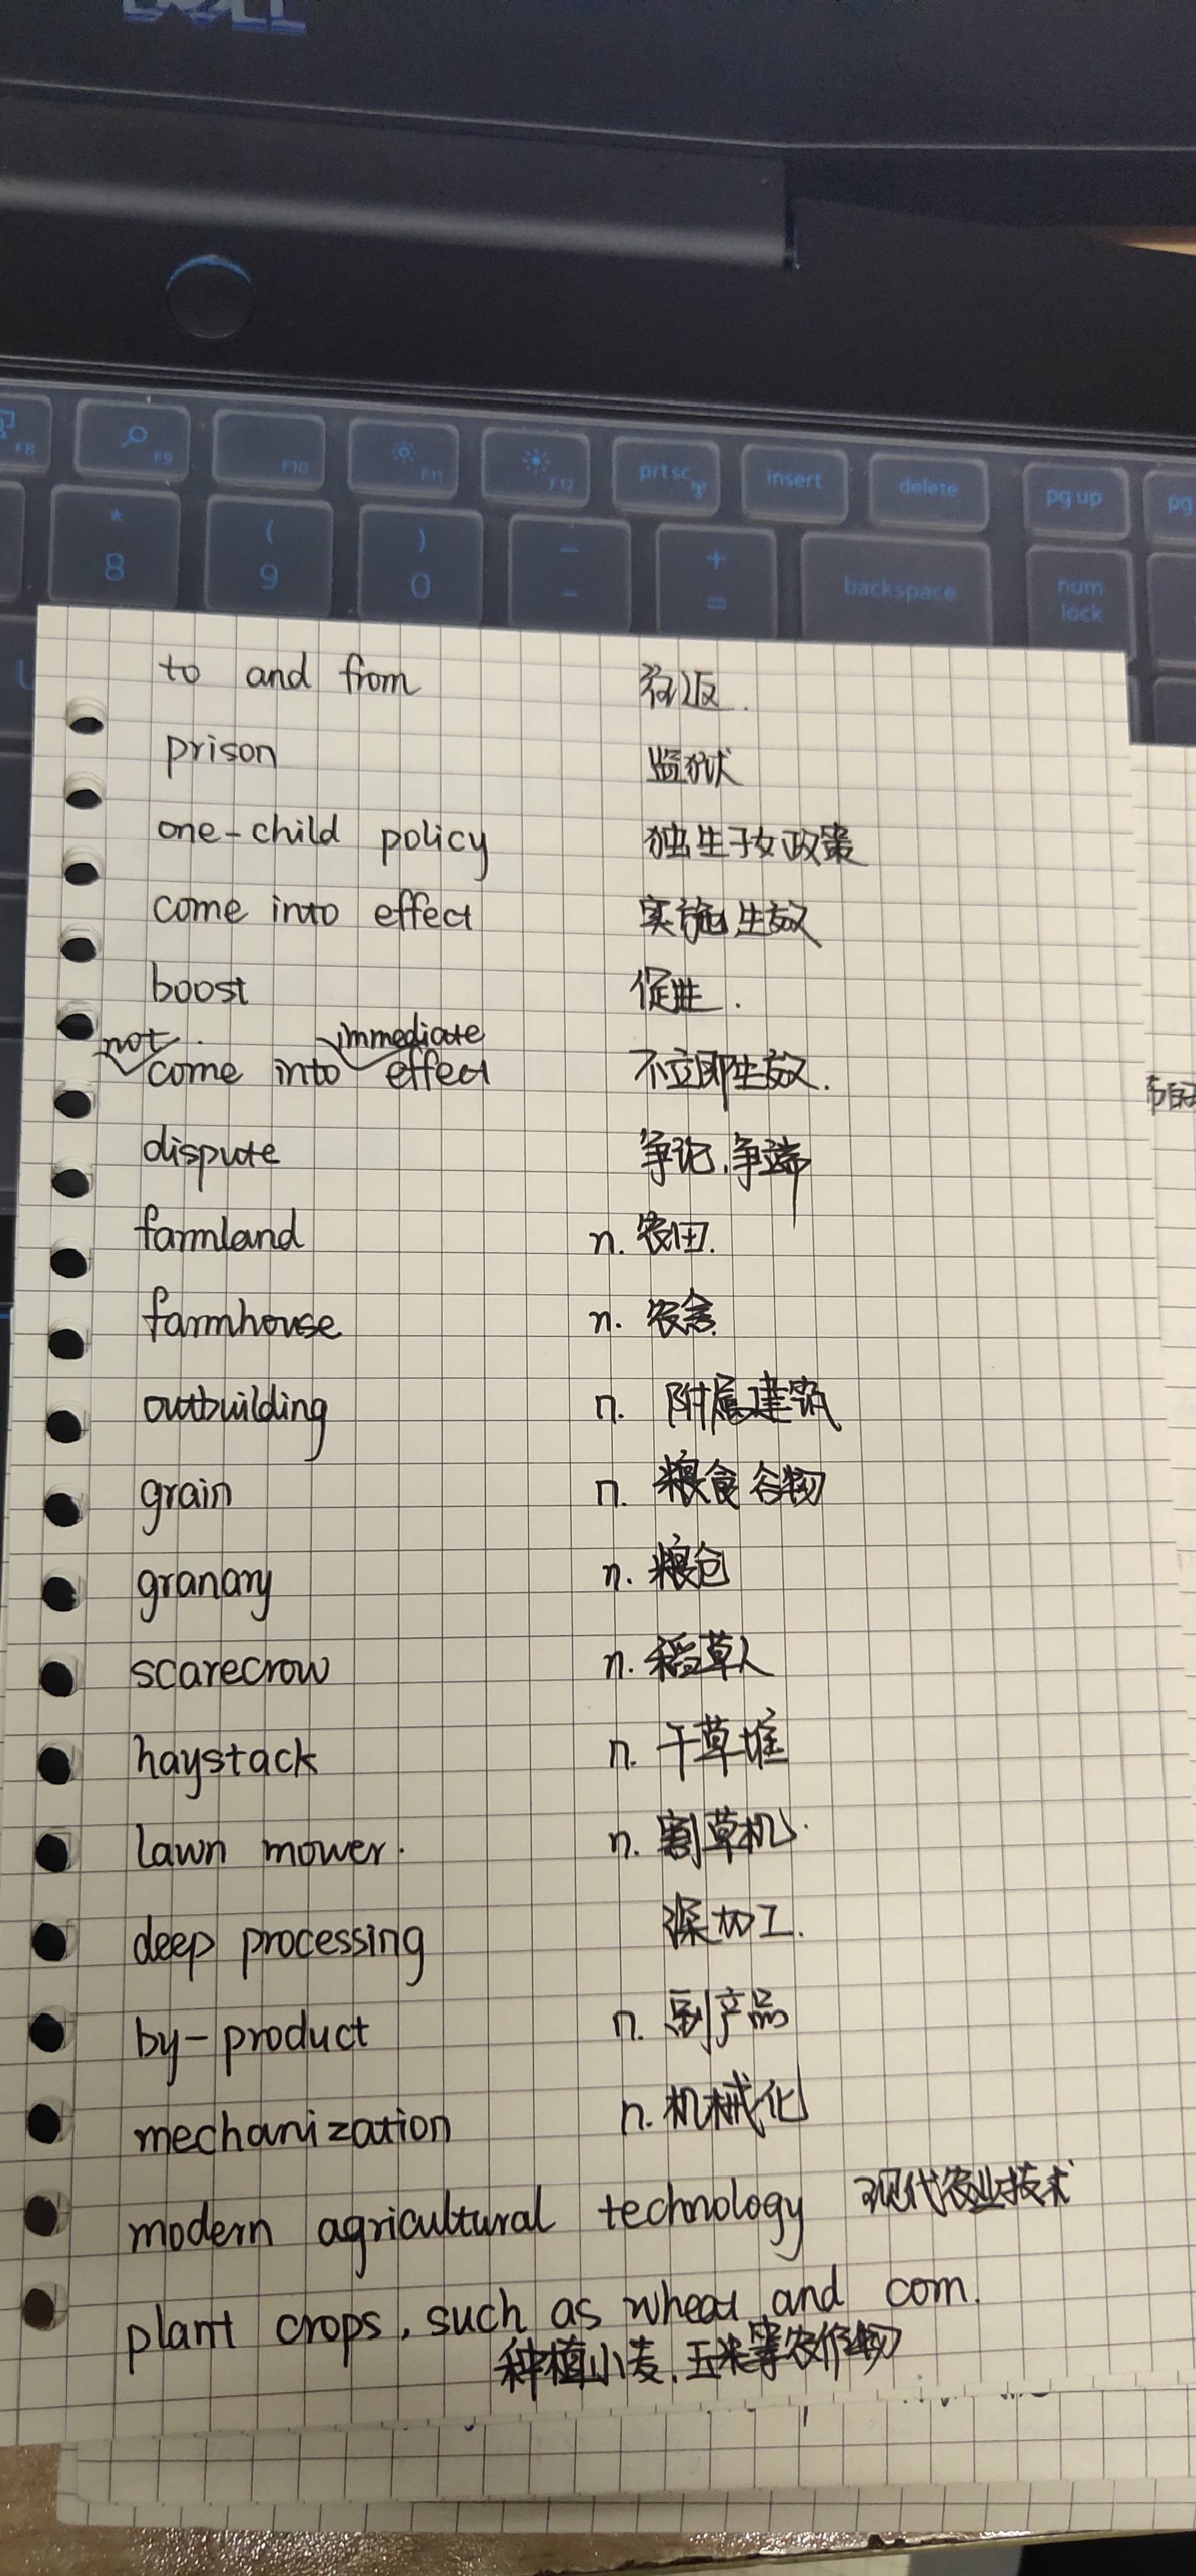 DELL
F8 F9 F10 F11 F12 prtsc insert delete pg up pg
* 8 ( 9 ) 0 - - + = backspace num lock
to and from 往返.
prison 监狱
one-child policy 独生子女政策
come into effect 实施 生效
boost 促进.
not immediate
come into effect 不立即生效.
dispute 争论.争端
farmland n. 农田.
farmhouse n. 农舍.
outbuilding n. 附属建筑
grain n. 粮食 谷物
granary n. 粮仓
scarecrow n. 稻草人
haystack n. 干草堆
lawn mower. n. 割草机.
deep processing 深加工.
by-product n. 副产品
mechanization n. 机械化
modern agricultural technology 现代农业技术
plant crops, such as wheat and corn.
种植小麦.玉米等农作物